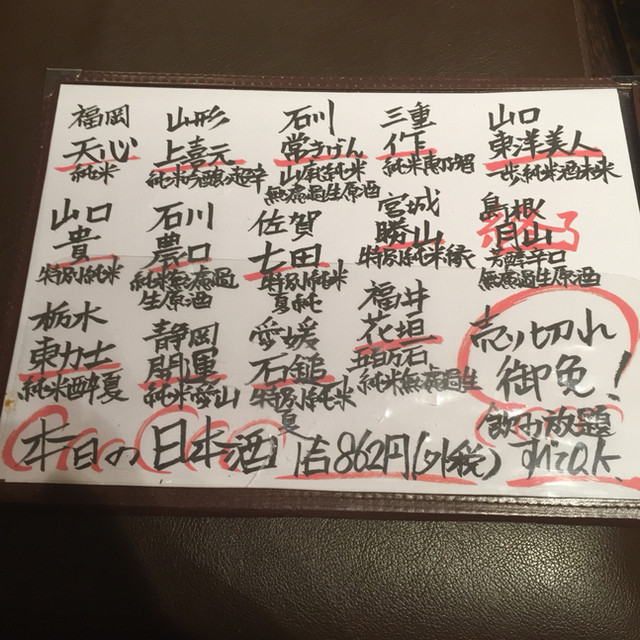 福岡
天心
純米
山形
上喜元
純米吟醸超辛
石川
常きげん
山廃純米
無濾過生原酒
三重
作
純米
山口
東洋美人
一歩純米酒木
山口
貴
特別純米
石川
農口
純米無濾過
生原酒
佐賀
七田
特別純米
夏純
宮城
勝山
特別純米縁
島根
月山
終了
辛口
無濾過生原酒
栃木
東力士
純米酔夏
静岡
開運
純米愛山
愛媛
石鎚
特別純米
夏
福井
花垣
五百万石
純米無濾過生
売り切れ
御免!
飲み放題
すべてO.K.
本日の日本酒 1合862円(外税)